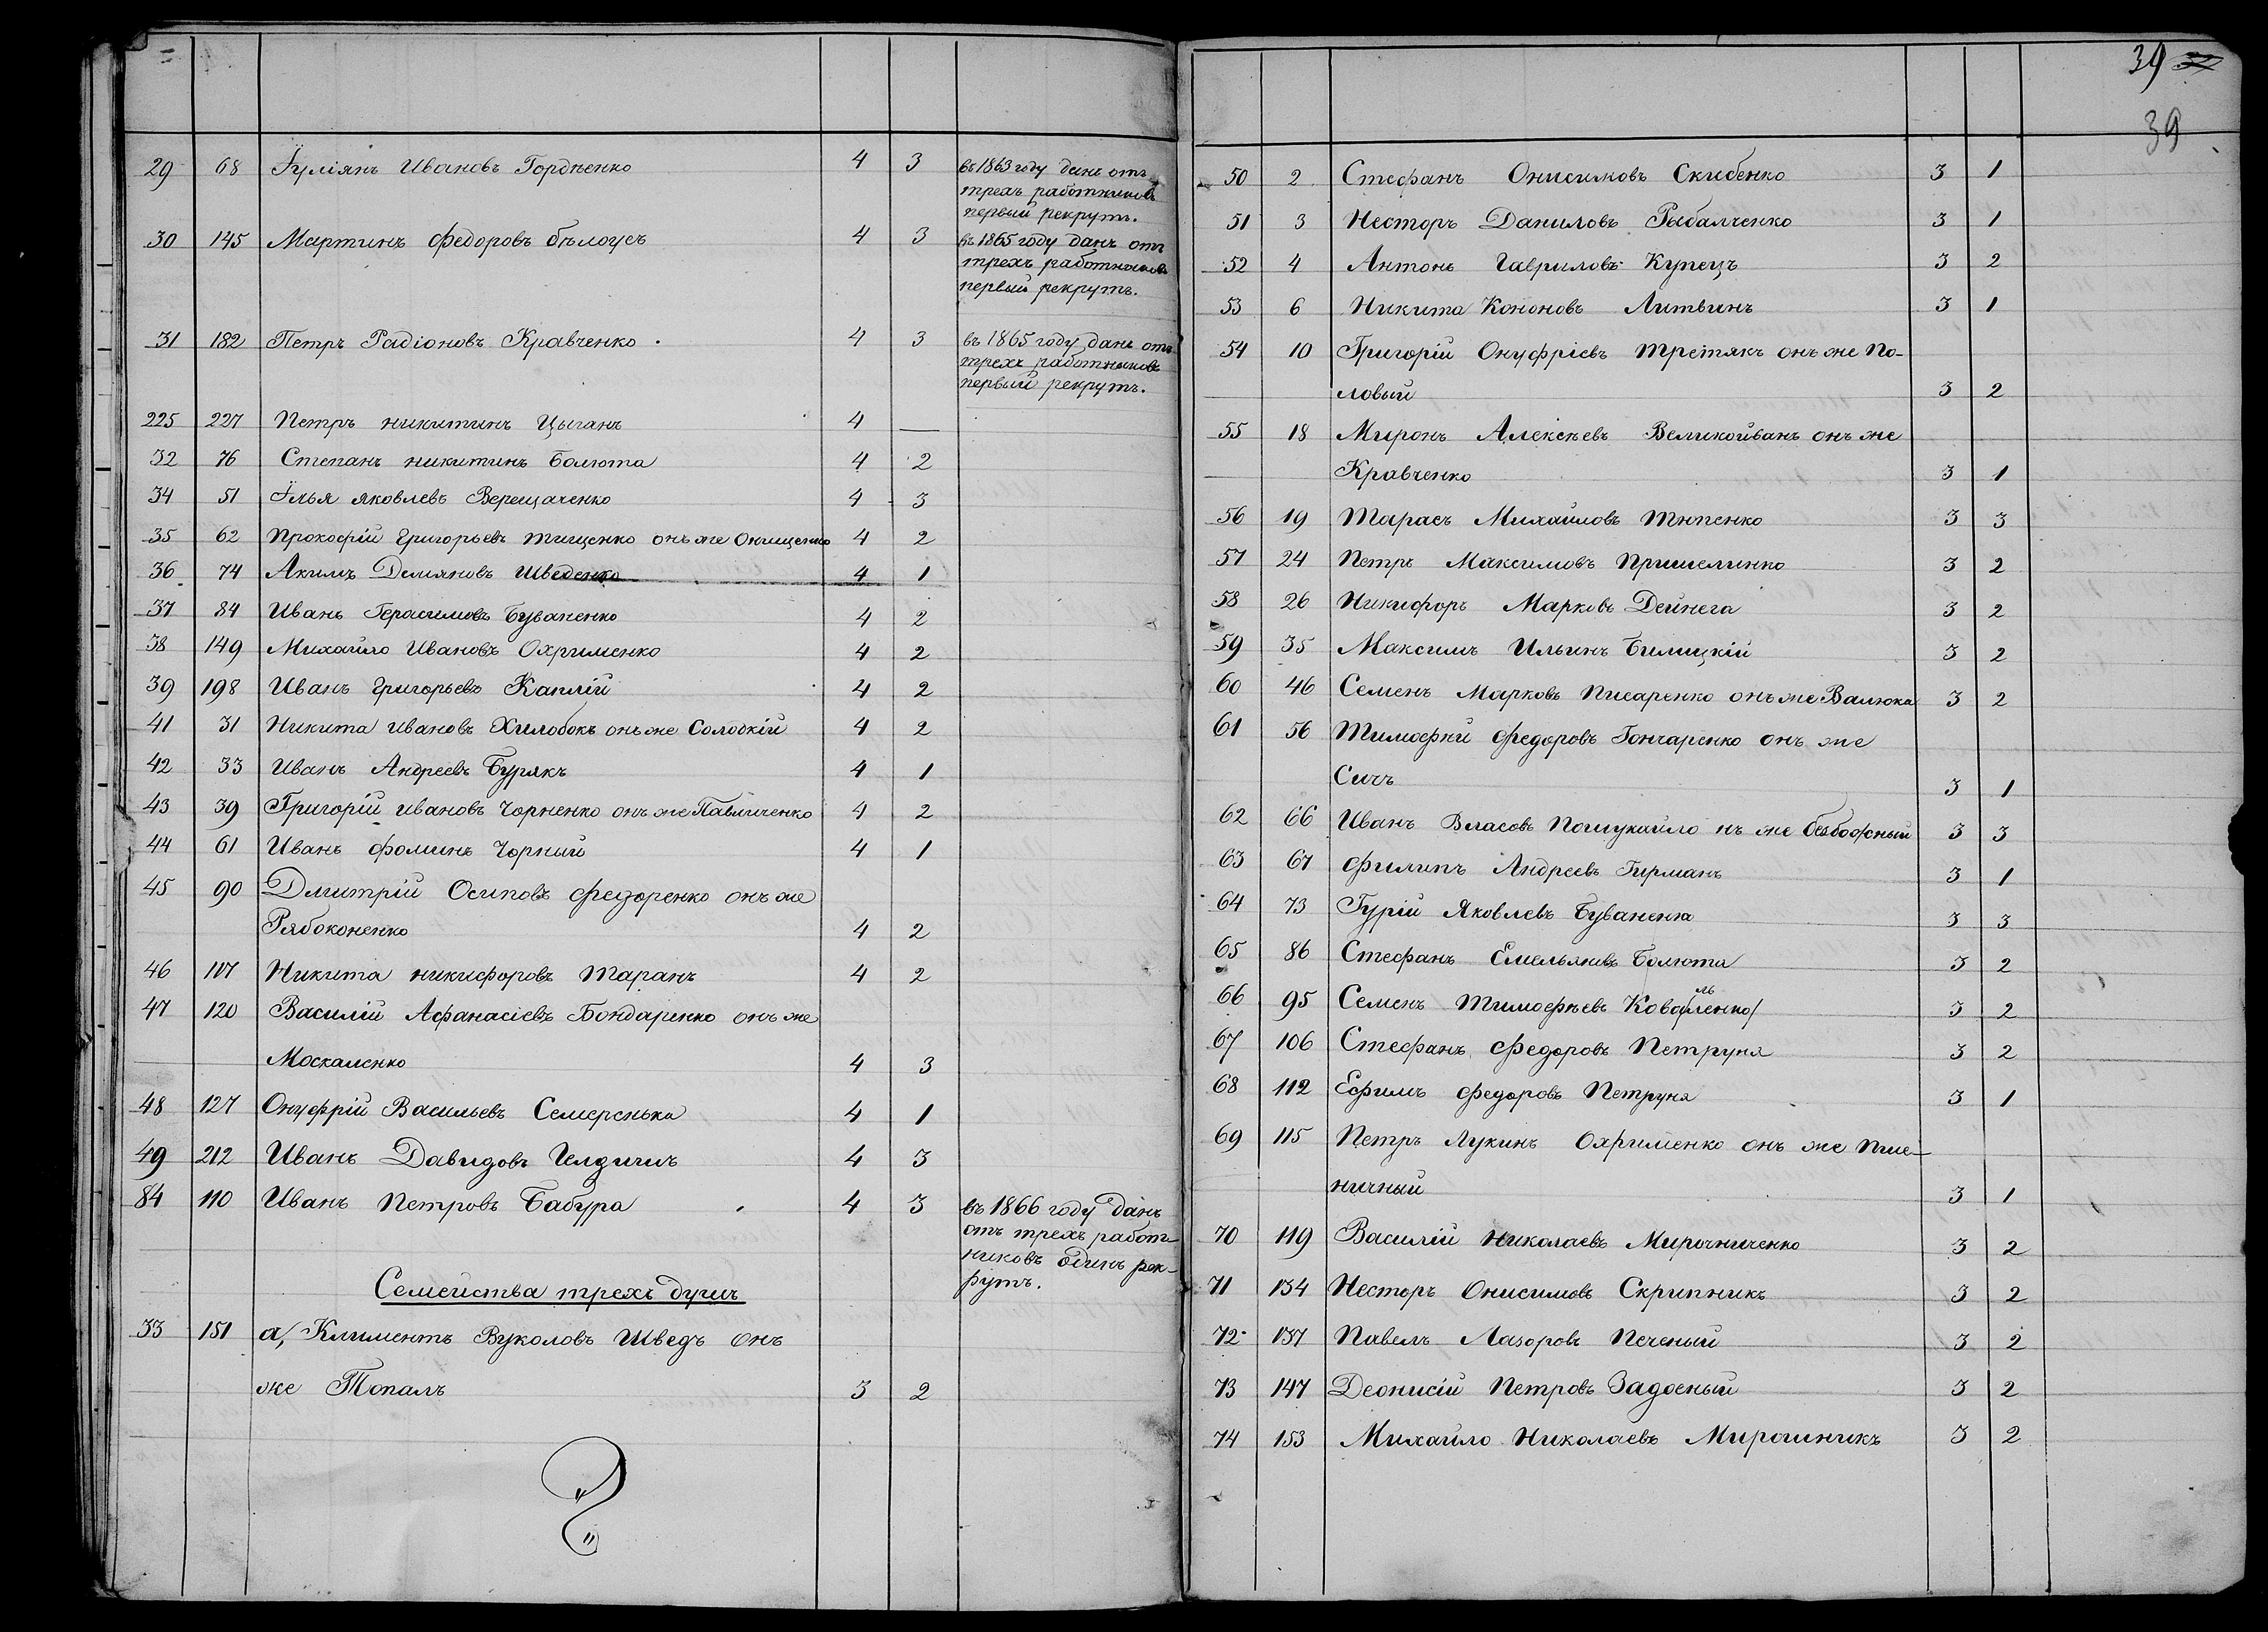 29 68 Іуліянъ Ивановъ Гордѣенко 4 3 въ 1863 году данъ отъ
трехъ работниковъ
первый рекрутъ.
30 145 Мартинъ Федоровъ бѣлоусъ 4 3 въ 1865 году данъ отъ
трехъ работниковъ
первый рекрутъ.
31 182 Петръ Радіоновъ Кравченко. 4 3 въ 1865 году данъ отъ
трехъ работниковъ
первый рекрутъ.
225 227 Петръ никитинъ Цыганъ 4 —
32 76 Степанъ никитинъ Болюта 4 2
34 51 Илья яковлевъ Верещаченко 4 3
35 62 Прокофій Григорьевъ тищенко онъ же Онищенко 4 2
36 74 Акимъ Демяновъ Шведенко 4 1
37 84 Иванъ Герасимовъ Буваненко 4 2
38 149 Михайло Ивановъ Охрименко 4 2
39 198 Иванъ Григорьевъ Каплій 4 2
41 31 Никита ивановъ Хилобокъ онъ же Солодкій 4 2
42 33 Иванъ Андреевъ Бурякъ 4 1
43 39 Григорій ивановъ Чорненко онъ же Павличенко 4 2
44 61 Иванъ фоминъ Чорный 4 1
45 90 Дмитрій Осиповъ Федоренко онъ же
Рябоконенко 4 2
46 107 Никита никифоровъ Таранъ 4 2
47 120 Василій Афанасіевъ Бондаренко онъ же
Москаленко 4 3
48 127 Онуфрій Васильевъ Семеренька 4 1
49 212 Иванъ Давидовъ Челдишъ 4 3
84 110 Иванъ Петровъ Бабура 4 3 въ 1866 году данъ
отъ трехъ работ-
никовъ одинъ рек-
рутъ.
Семейства трехъ душъ
33 151 а, Климентъ Вуколовъ Шведъ онъ
же Топалъ 3 2
39
39
50 2 Стефанъ Онисимовъ Скибенко 3 1
51 3 Несторъ Даниловъ Рыбалченко 3 1
52 4 Антонъ Гавриловъ Купецъ 3 2
53 6 Никита Кононовъ Литвинъ 3 1
54 10 Григорій Онуфріевъ Третякъ онъ же По-
ловый 3 2
55 18 Миронъ Алексѣевъ Великоиванъ онъ же
Кравченко 3 1
56 19 Тарасъ Михайловъ Тютенко 3 3
57 24 Петръ Максимовъ Пришелинко 3 2
58 26 Никифоръ Марковъ Дейнега 3 2
59 35 Максимъ Ильинъ Билицкій 3 2
60 46 Семенъ Марковъ Писаренко онъ же Валюка 3 2
61 56 Тимофей Федоровъ Гончаренко онъ же
Сичъ 3 1
62 66 Иванъ Власовъ Пошукайло нъ же безбожный 3 3
63 67 Филипъ Андреевъ Гирманъ 3 1
64 73 Гурій Яковлевъ Буваненко 3 3
65 86 Стефанъ Емельяновъ Болюта 3 2
66 95 Семенъ Тимофѣевъ Коваленко 3 2
67 106 Стефанъ Федоровъ Петруня 3 2
68 112 Ефимъ Федоровъ Петруня 3 1
69 115 Петръ Лукинъ Охрименко онъ же Пше-
ничный 3 1
70 119 Василій Николаевъ Мирочниченко 3 2
71 134 Несторъ Онисимовъ Скрипникъ 3 2
72 137 Павелъ Лазоровъ Печеный 3 2
73 147 Деонисій Петровъ Задоеный 3 2
74 153 Михайло Николаевъ Мирошникъ 3 2